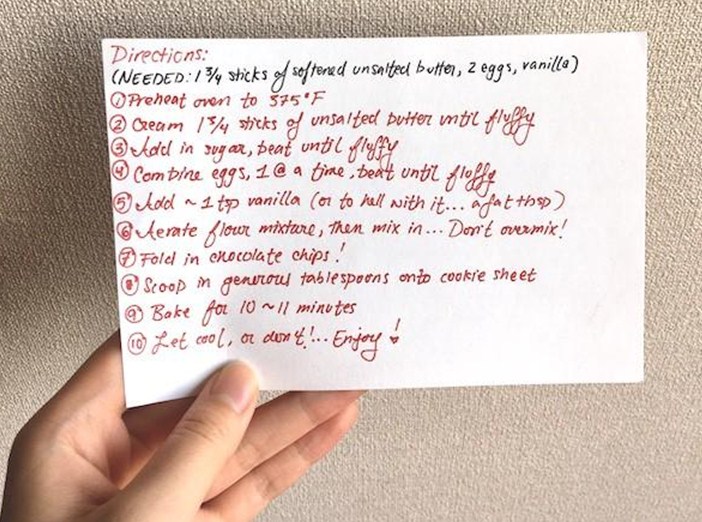 Directions:
(NEEDED: 1 3/4 sticks of softened unsalted butter, 2 eggs, vanilla)
① Preheat oven to 375°F
② Cream 1 3/4 sticks of unsalted butter until fluffy
③ Add in sugar, beat until fluffy
④ Combine eggs, 1 @ a time, beat until fluffy
⑤ Add ~ 1 tsp vanilla (or to hell with it... a fat tbsp)
⑥ Aerate flour mixture, then mix in... Don't overmix!
⑦ Fold in chocolate chips!
⑧ Scoop in generous tablespoons onto cookie sheet
⑨ Bake for 10 ~ 11 minutes
⑩ Let cool, or don't!... Enjoy!